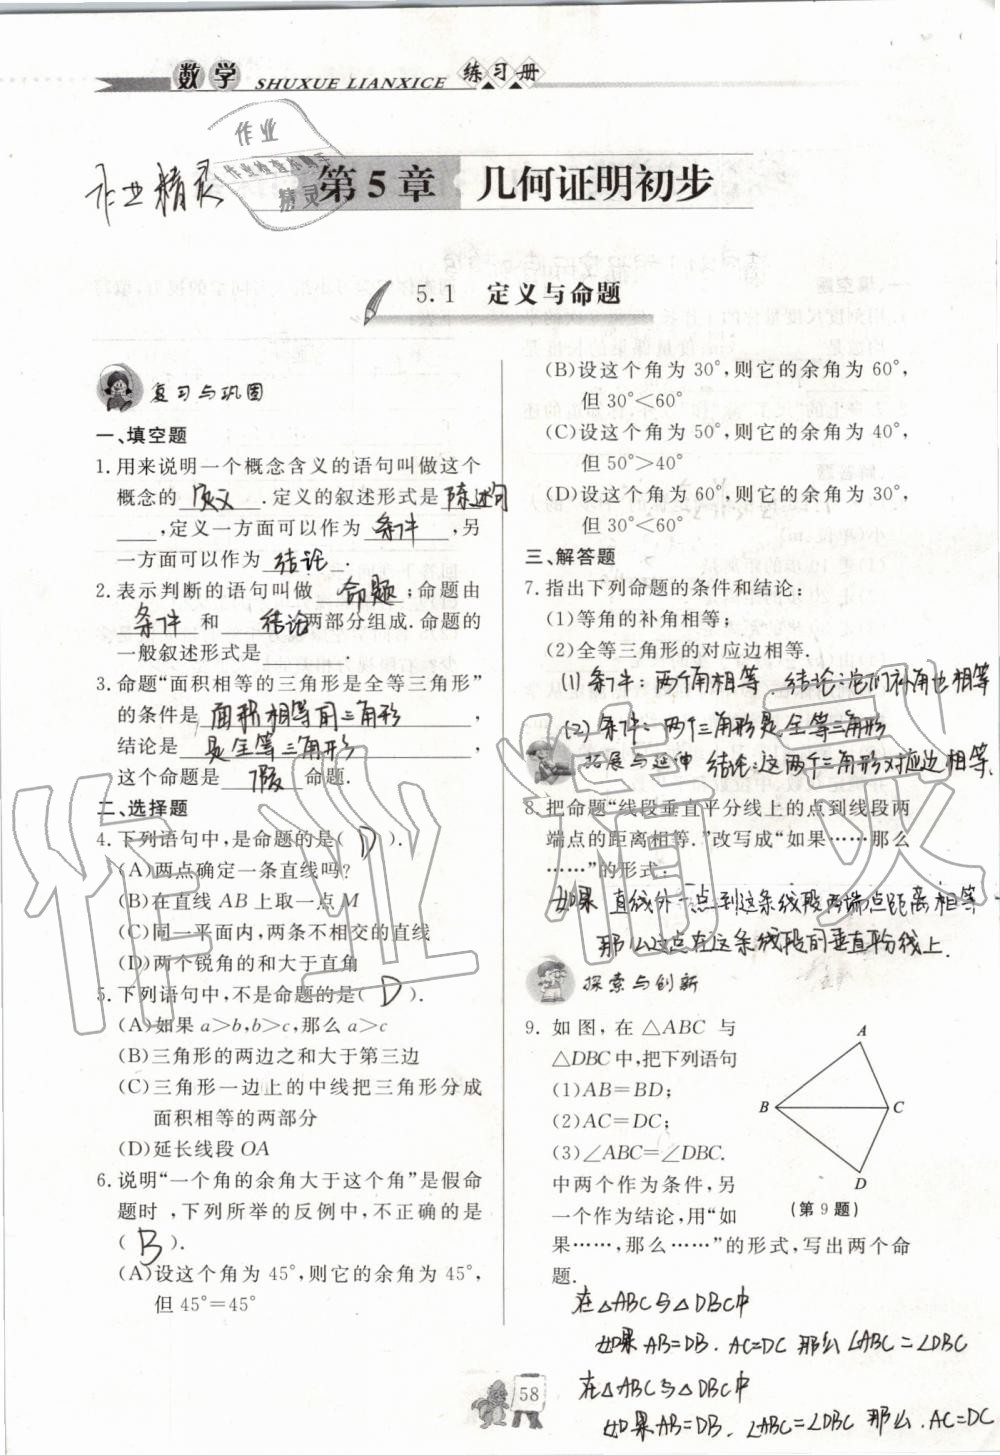 数学 SHUXUE LIANXICE 练习册
作业
精灵
作业精灵
第5章 几何证明初步
5.1 定义与命题
复习与巩固
一、填空题
1. 用来说明一个概念含义的语句叫做这个
概念的 定义 . 定义的叙述形式是 陈述句
,定义一方面可以作为 条件 ,另
一方面可以作为 结论 .
2. 表示判断的语句叫做 命题 ;命题由
条件 和 结论 两部分组成. 命题的
一般叙述形式是 .
3. 命题“面积相等的三角形是全等三角形”
的条件是 面积相等的三角形 ,
结论是 是全等三角形 ,
这个命题是 假 命题.
二、选择题
4. 下列语句中,是命题的是( D ).
(A)两点确定一条直线吗?
(B)在直线 AB 上取一点 M
(C)同一平面内,两条不相交的直线
(D)两个锐角的和大于直角
5. 下列语句中,不是命题的是( D ).
(A)如果 a>b,b>c,那么 a>c
(B)三角形的两边之和大于第三边
(C)三角形一边上的中线把三角形分成
面积相等的两部分
(D)延长线段 OA
6. 说明“一个角的余角大于这个角”是假命
题时,下列所举的反例中,不正确的是
( B ).
(A)设这个角为 45°,则它的余角为 45°,
但 45°=45°
(B)设这个角为 30°,则它的余角为 60°,
但 30°<60°
(C)设这个角为 50°,则它的余角为 40°,
但 50°>40°
(D)设这个角为 60°,则它的余角为 30°,
但 30°<60°
三、解答题
7. 指出下列命题的条件和结论:
(1)等角的补角相等;
(2)全等三角形的对应边相等.
(1) 条件:两个角相等 结论:它们补角也相等
(2) 条件:两个三角形是全等三角形
拓展与延伸 结论:这两个三角形对应边相等.
8. 把命题“线段垂直平分线上的点到线段两
端点的距离相等.”改写成“如果……那么
……”的形式.
如果 直线外一点到这条线段两端点距离相等
那么这点在这条线段的垂直平分线上.
探索与创新
9. 如图,在 △ABC 与
△DBC 中,把下列语句
(1)AB=BD;
(2)AC=DC;
(3)∠ABC=∠DBC.
中两个作为条件,另
一个作为结论,用“如
果……,那么……”的形式,写出两个命
题.
A
B
C
D
(第 9 题)
在△ABC与△DBC中
如果AB=DB.AC=DC 那么∠ABC=∠DBC
在△ABC与△DBC中
如果AB=DB.∠ABC=∠DBC 那么.AC=DC
58
作业精灵